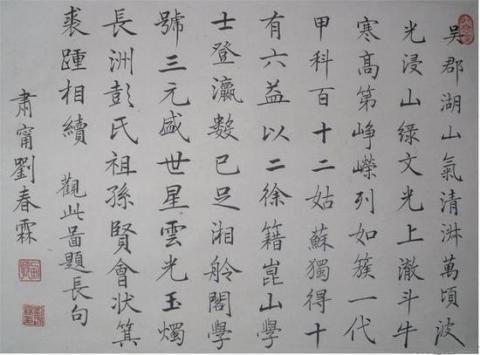 吳郡湖山氣清淑萬頃波
光浸山綠文光上澈斗牛
寒高第崢嶸列如簇一代
甲科百十二姑蘇獨得十
有六益以二徐籍崑山學
士登瀛數已足湘舲閣學
號三元盛世星雲光玉燭
長洲彭氏祖孫賢會狀箕
裘踵相續 觀此啚題長句
肅甯劉春霖